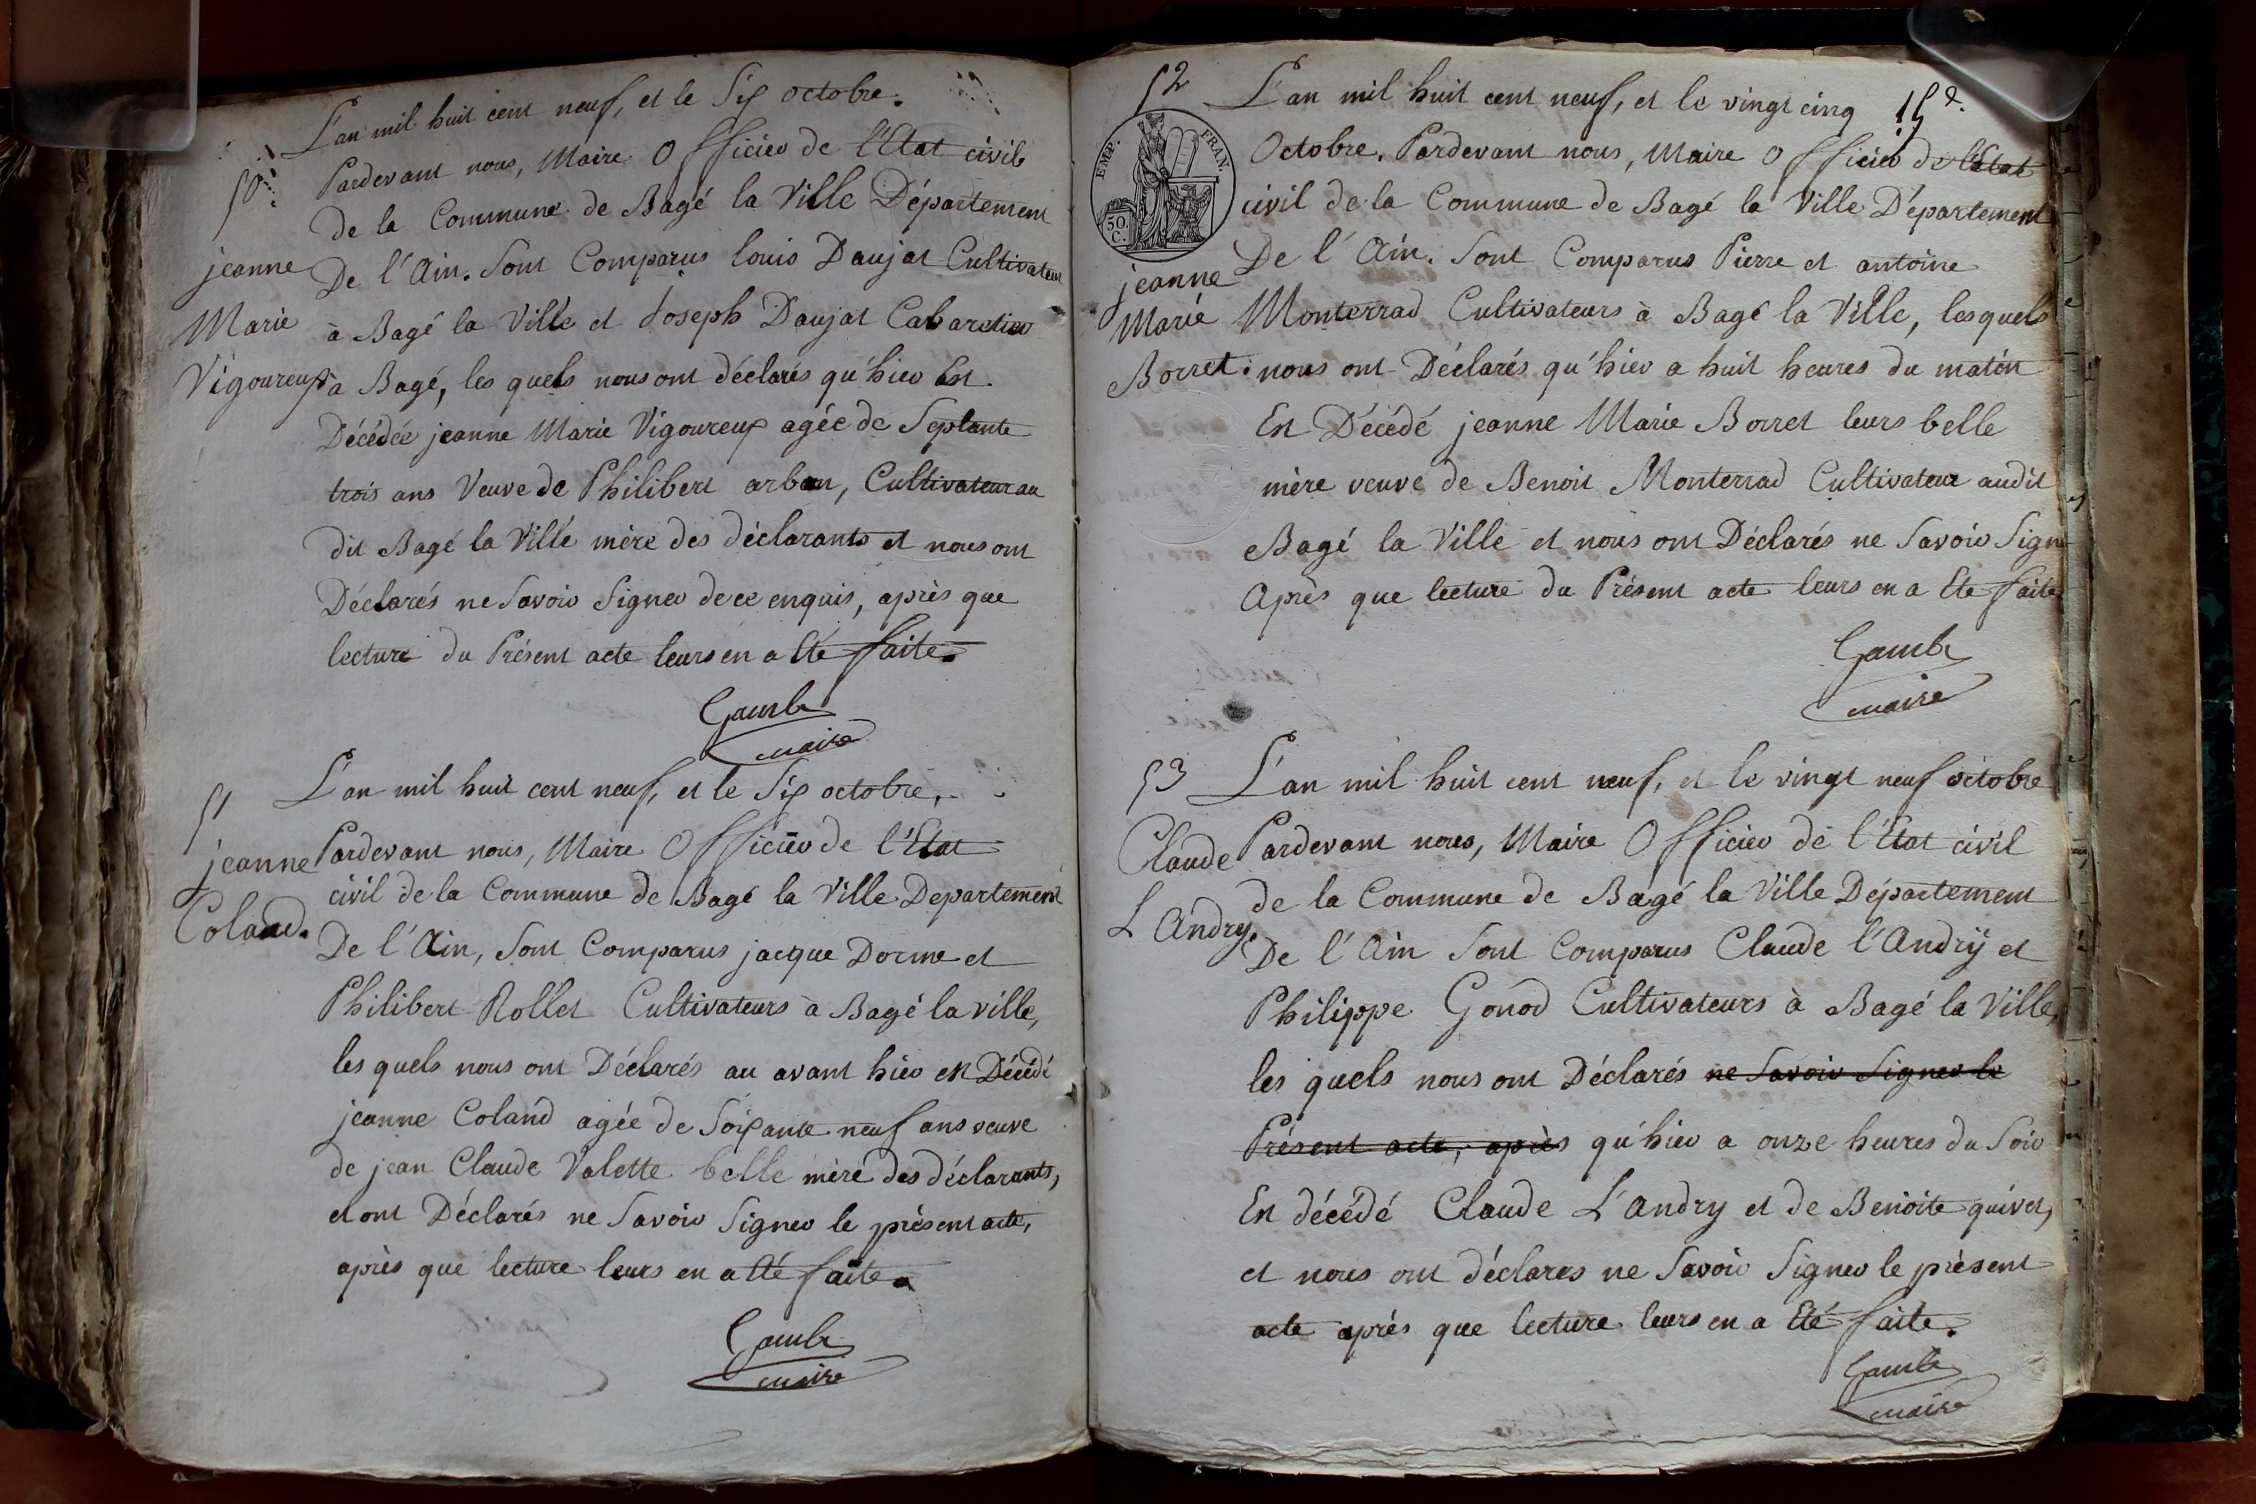 L'an mil huit cent neuf, et le Six octobre.
50
Pardevant nous, Maire Officier de l'Etat civil
de la Commune de Bagé la Ville Département
jeanne
De l'Ain. Sont Comparus louis Daujat Cultivateur
Marie
à Bagé la Ville et Joseph Daujat Cabaretier
Vigoureux
à Bagé, les quels nous ont déclarés qu'hier Est
Décédée jeanne Marie Vigoureux agée de Septante
trois ans Veuve de Philibert arban, Cultivateur au
dit Bagé la Ville mère des déclarants et nous ont
Déclarés ne Savoir Signer de ce enquis, après que
lecture du Présent acte leurs en a Eté faite.
Gambe
maire
L'an mil huit cent neuf, et le Six octobre,
51
jeanne
Pardevant nous, Maire Officier de l'Etat
civil de la Commune de Bagé la Ville Departement
Coland.
De l'Ain, Sont Comparus jacque Dorme et
Philibert Rollet Cultivateurs à Bagé la ville,
les quels nous ont Déclarés au avant hier est Décédé
jeanne Coland agée de Soixante neuf ans veuve
de jean Claude Valette belle mère des déclarants,
et ont Déclarés ne Savoir Signer le présent acte,
après que lecture leurs en a Eté faite.
Gambe
maire
52
L'an mil huit cent neuf, et le vingt cinq
EMP. FRAN.
50. C.
Octobre. Pardevant nous, Maire Officier de l'Etat
civil de la Commune de Bagé la Ville Département
De l'Ain. Sont Comparus Pierre et antoine
jeanne
Marie
Monterrad Cultivateurs à Bagé la Ville, lesquels
Borret.
nous ont Déclarés qu'hier a huit heures du matin
Est Décédé jeanne Marie Borret leurs belle
mère veuve de Benoit Monterrad Cultivateur audit
Bagé la Ville et nous ont Déclarés ne Savoir Signe
Après que lecture du Présent acte leurs en a Ete faite
Gambe
maire
53
L'an mil huit cent neuf, et le vingt neuf octobre
Claude
Pardevant nous, Maire Officier de l'Etat civil
de la Commune de Bagé la Ville Département
L'Andry.
De l'Ain Sont Comparus Claude l'Andrÿ et
Philippe Gonod Cultivateurs à Bagé la Ville,
les quels nous ont Déclarés ne Savoir Signer le
Présent acte, après qu'hier a onze heures du Soir
Est décédé Claude L'andry et de Benoite quivet,
et nous ont déclarés ne Savoir Signer le présent
acte après que lecture leurs en a Eté faite.
Gambe
maire